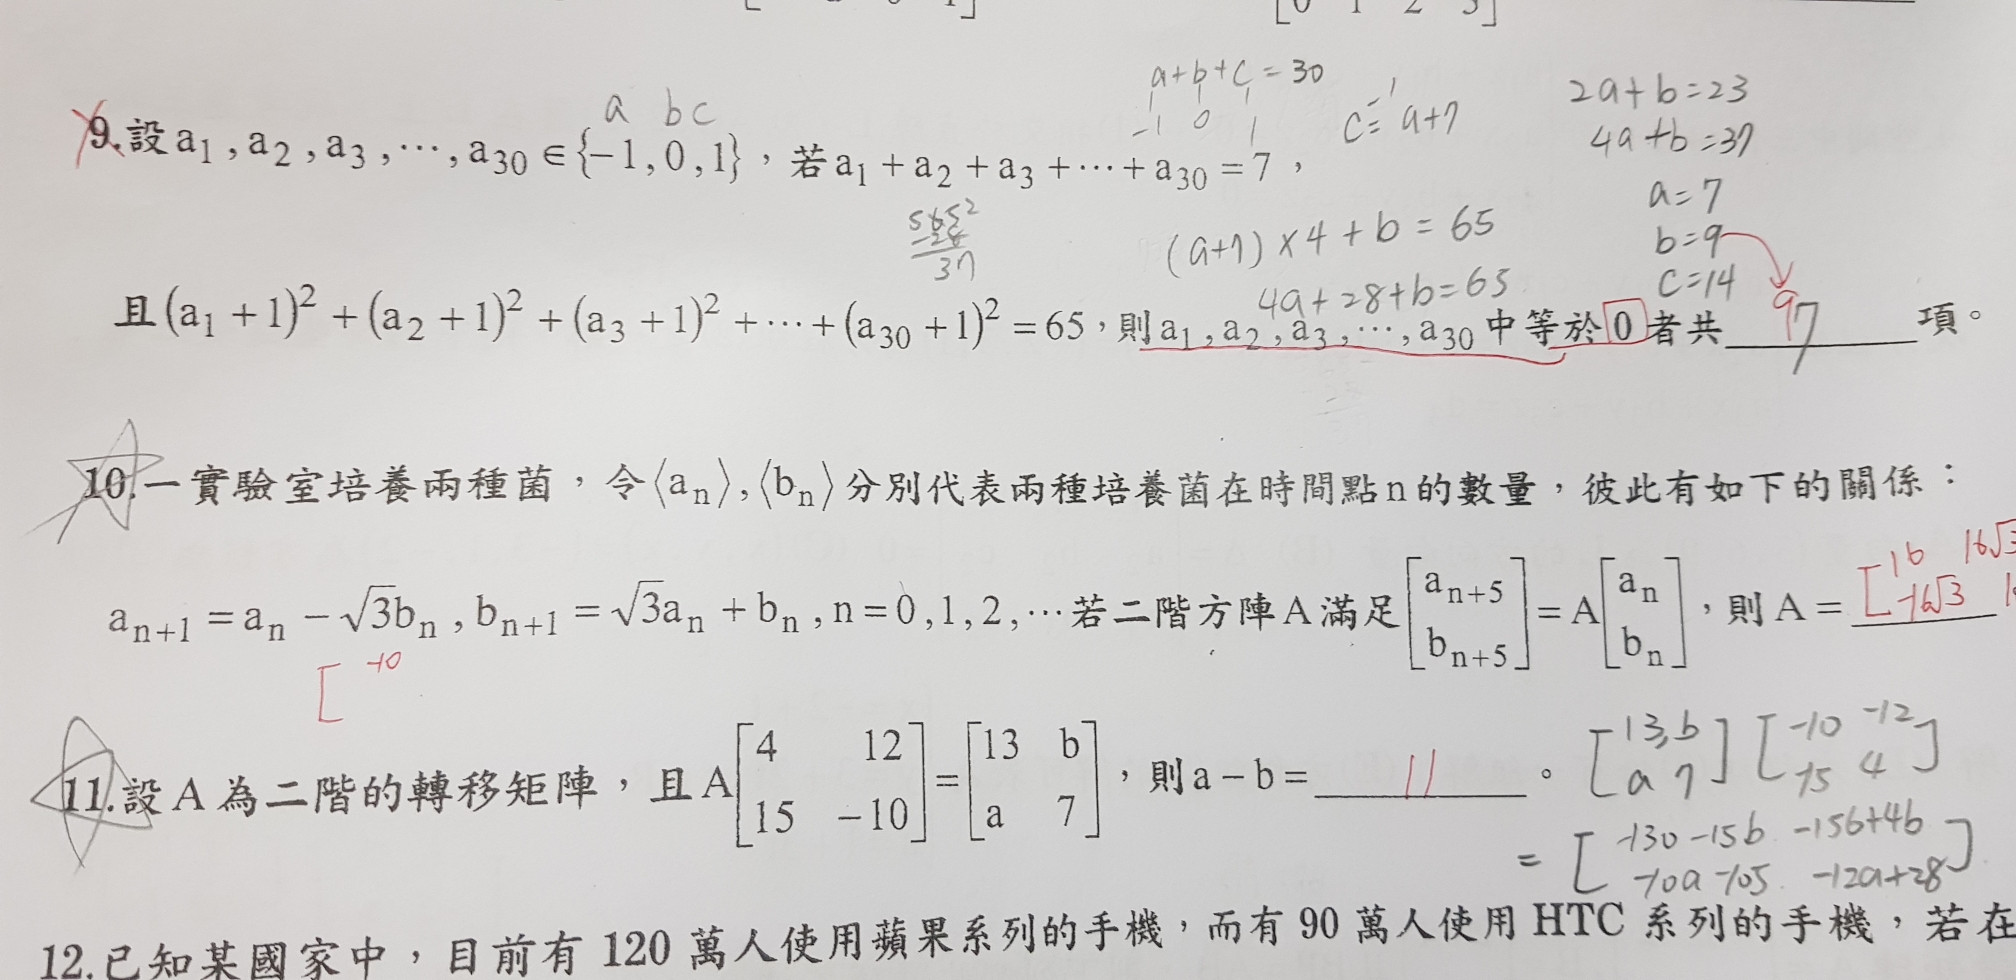 0 1 2 3
a b c
a+b+c=30
-1 0 1
c=a+7
2a+b=23
4a+b=37
a=7
b=9
c=14
9.設a₁,a₂,a₃,⋯,a₃₀∈{-1,0,1},若a₁+a₂+a₃+⋯+a₃₀=7,
37
(a+7)×4+b=65
4a+28+b=65
且(a₁+1)²+(a₂+1)²+(a₃+1)²+⋯+(a₃₀+1)²=65,則a₁,a₂,a₃,⋯,a₃₀中等於0者共 9 7 項。
10.一實驗室培養兩種菌,令⟨aₙ⟩,⟨bₙ⟩分別代表兩種培養菌在時間點n的數量,彼此有如下的關係:
aₙ₊₁=aₙ-√3bₙ,bₙ₊₁=√3aₙ+bₙ,n=0,1,2,⋯若二階方陣A滿足[aₙ₊₅ bₙ₊₅]=A[aₙ bₙ],則A= [16 16√3
-16√3
[ -10
11.設A為二階的轉移矩陣,且A[4 12 15 -10]=[13 b a 7],則a-b= 11 。
[13, b a 7] [-10 -12 -15 4]
= [-130-15b -156+4b
-10a-105 -12a+28]
12.已知某國家中,目前有120萬人使用蘋果系列的手機,而有90萬人使用HTC系列的手機,若在